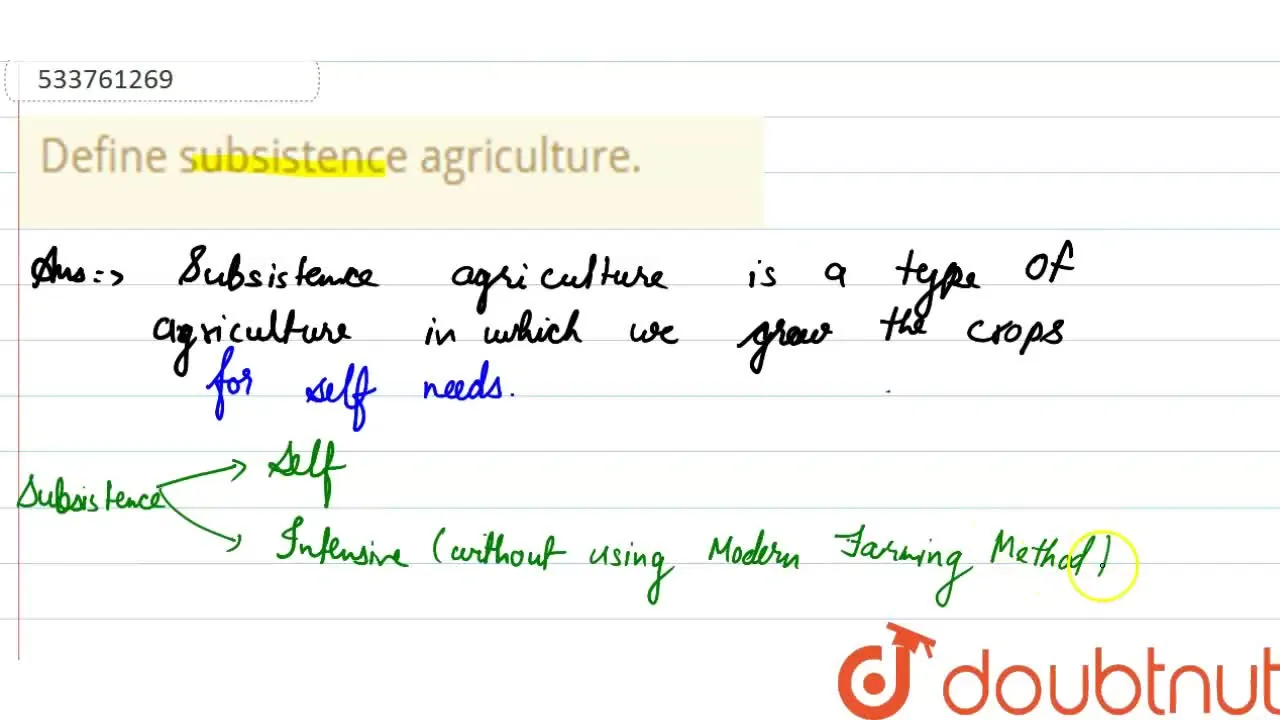 533761269
Define subsistence agriculture.
Ans :-> Subsistence agriculture is a type of
agriculture in which we grow the crops
for self needs.
Self
Subsistence
Intensive (without using Modern Farming Method)
doubtnut